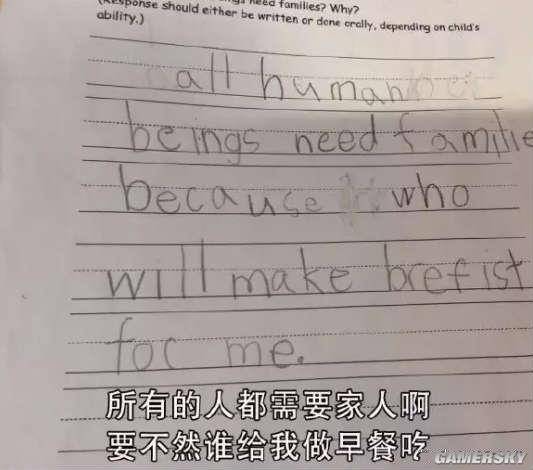 need families? Why?
(Response should either be written or done orally, depending on child's
ability.)
all human
beings need familie
because who
will make brefist
for me.
所有的人都需要家人啊
要不然谁给我做早餐吃
GAMERSKY